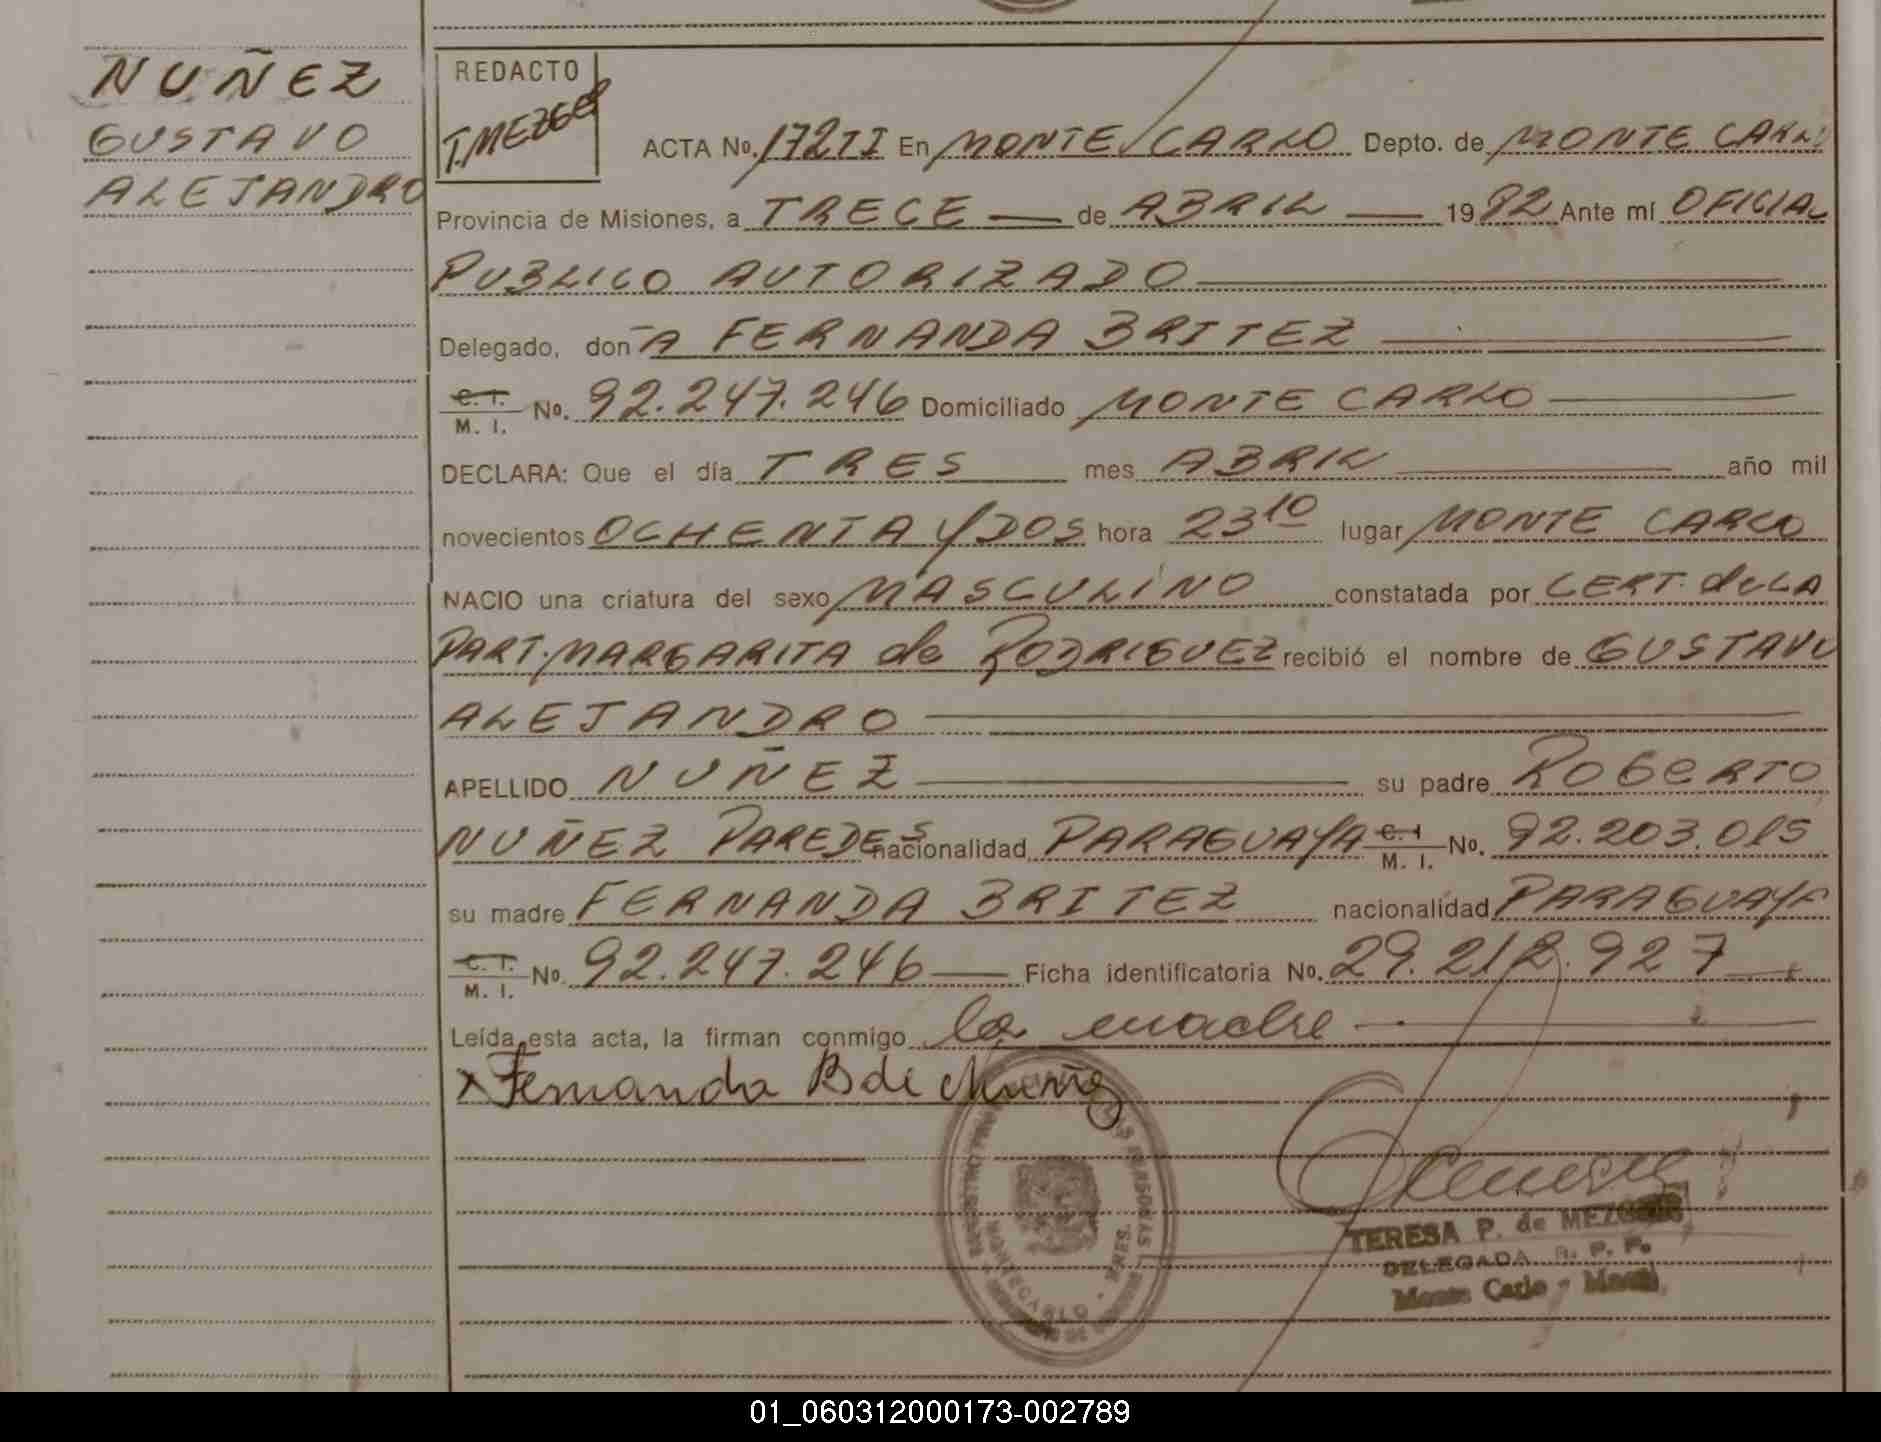 NUÑEZ
GUSTAVO
ALEJANDRO
REDACTO
T.MEZGER
ACTA No. 172TI En MONTE CARLO Depto. de MONTE CARLO
Provincia de Misiones, a TRECE de ABRIL 1982 Ante mí OFICIAL
PUBLICO AUTORIZADO
Delegado, don A FERNANDA BRITEZ
C. I. M. I. No. 92.247.246 Domiciliado MONTE CARLO
DECLARA: Que el día TRES mes ABRIL año mil
novecientos OCHENTA Y DOS hora 23 10 lugar MONTE CARLO
NACIO una criatura del sexo MASCULINO constatada por CERT. de LA
PART. MARGARITA de RODRIGUEZ recibió el nombre de GUSTAVO
ALEJANDRO
APELLIDO NUÑEZ su padre ROBERTO
NUÑEZ PAREDES nacionalidad PARAGUAYA C. I. M. I. No. 92.203.015
su madre FERNANDA BRITEZ nacionalidad PARAGUAYA
C. I. M. I. No. 92.247.246 Ficha identificatoria No. 29.212.927
Leída esta acta, la firman conmigo la madre
x Fernanda B de Nuñez
MONTECARLO - MNES.
TERESA P. de MEZGER
DELEGADA R. P. P.
Monte Carlo - Mnes.
01_060312000173-002789